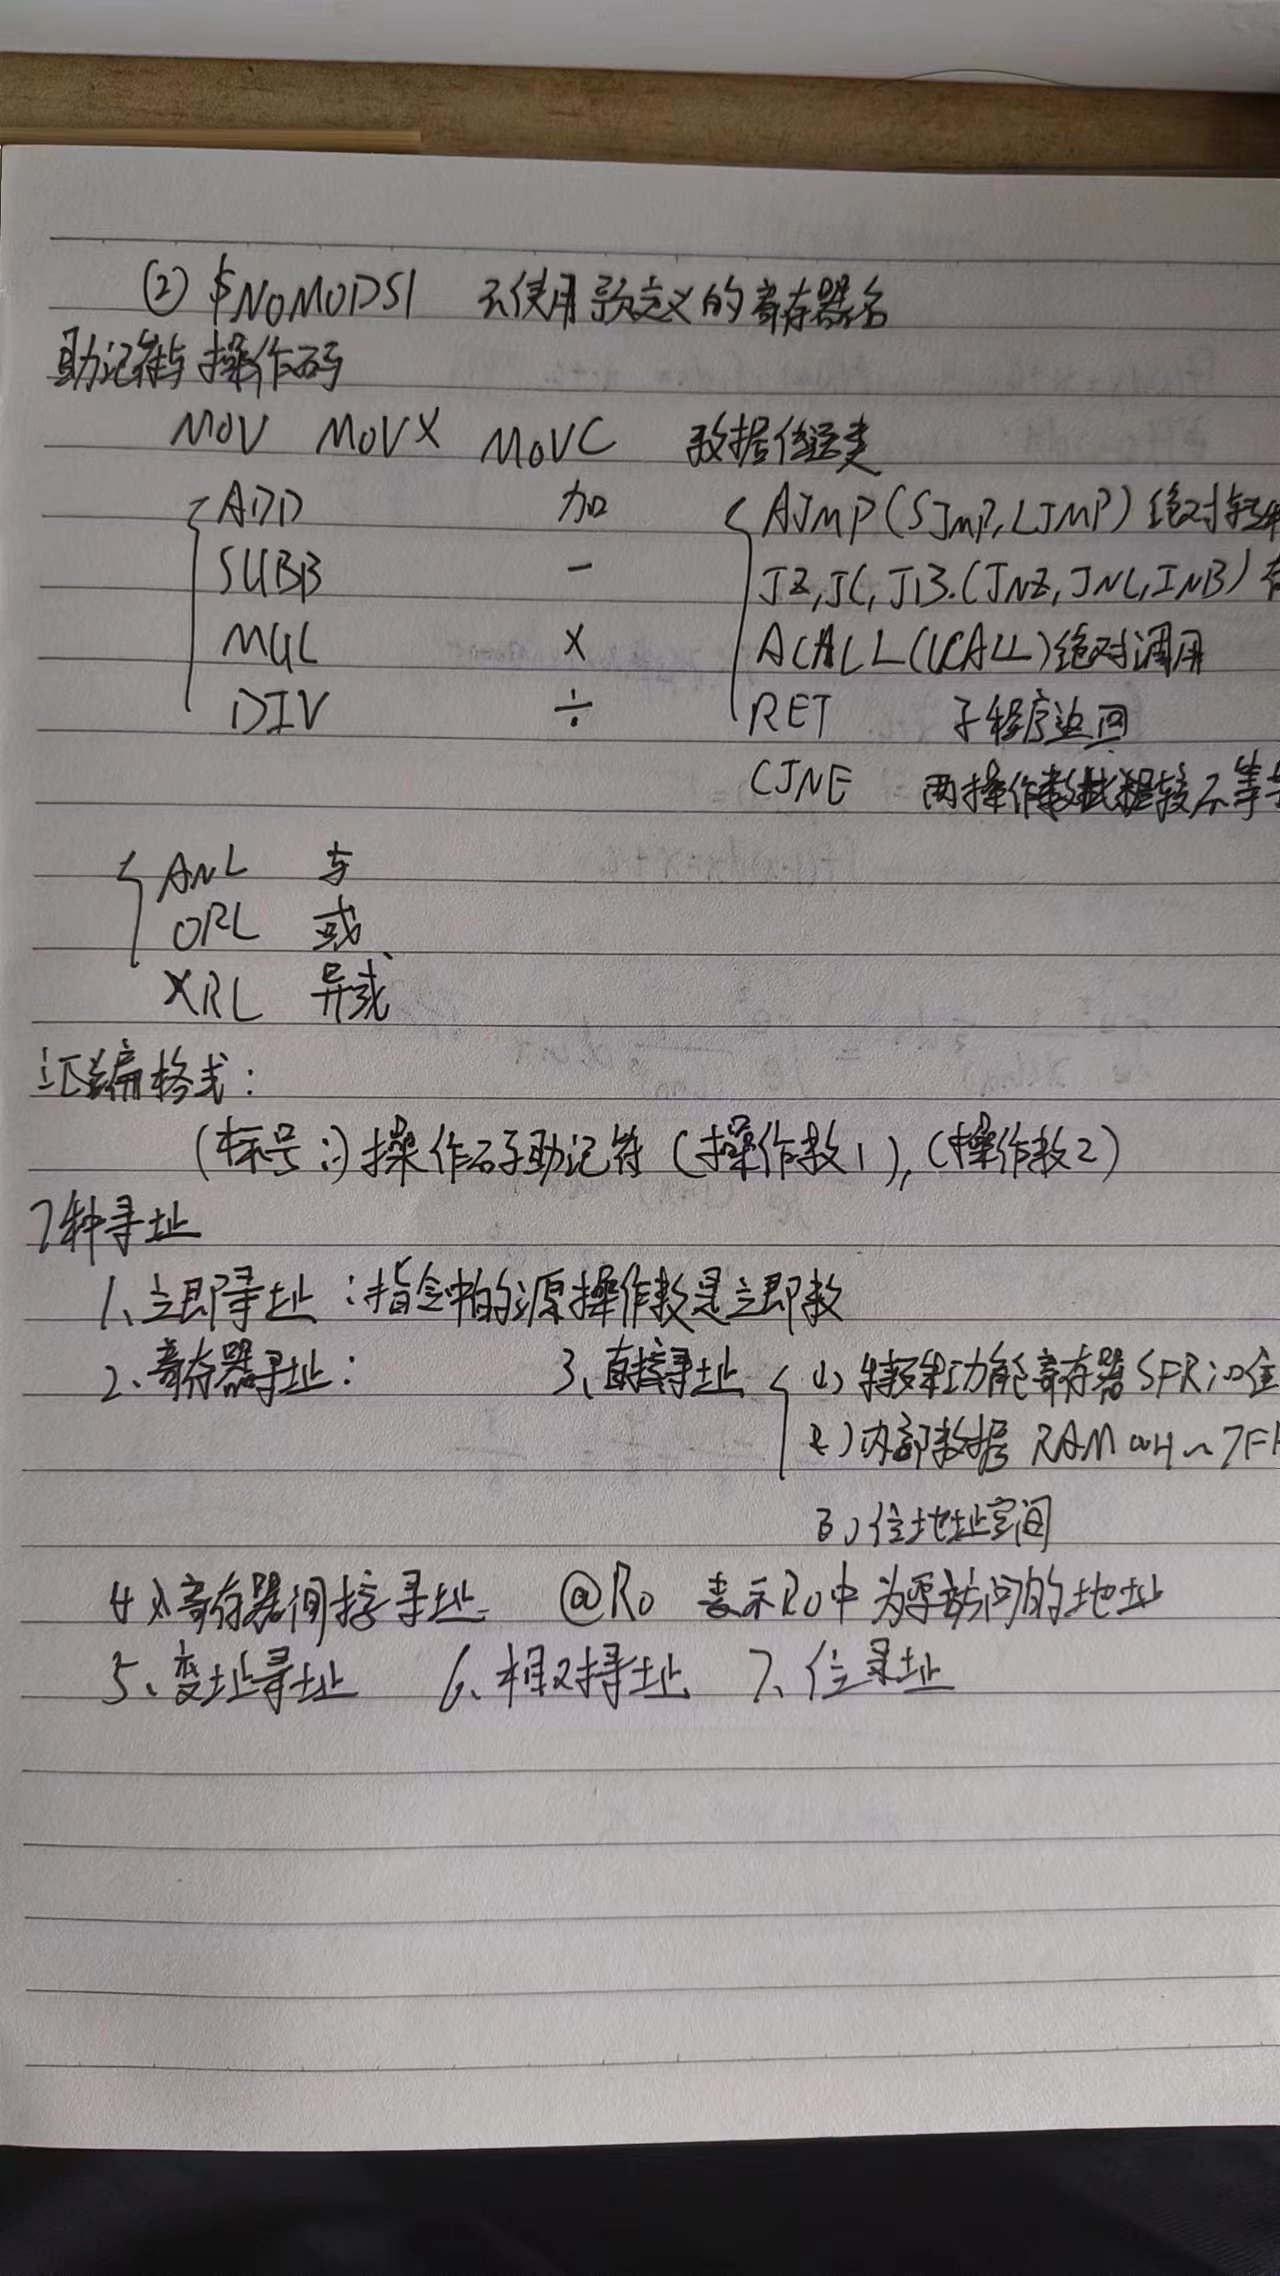 ② $NOMOD51 不使用预定义的寄存器名
助记符与操作码
MOV MOVX MOVC 数据传送类
ADD 加 AJMP(SJMP,LJMP)绝对转移
SUBB - JZ,JC,JB.(JNZ,JNC,JNB)
MUL × ACALL(LCALL)绝对调用
DIV ÷ RET 子程序返回
CJNE 两操作数比较不等
ANL 与
ORL 或
XRL 异或
汇编格式:
(标号:)操作码助记符(操作数1),(操作数2)
7种寻址
1、立即寻址:指令中的源操作数是立即数
2、寄存器寻址: 3、直接寻址 (1)特殊功能寄存器SFR
2)内部数据RAM 00H~7FH
3)位地址空间
4、寄存器间接寻址 @R0 表示R0中为要访问的地址
5、变址寻址 6、相对寻址 7、位寻址